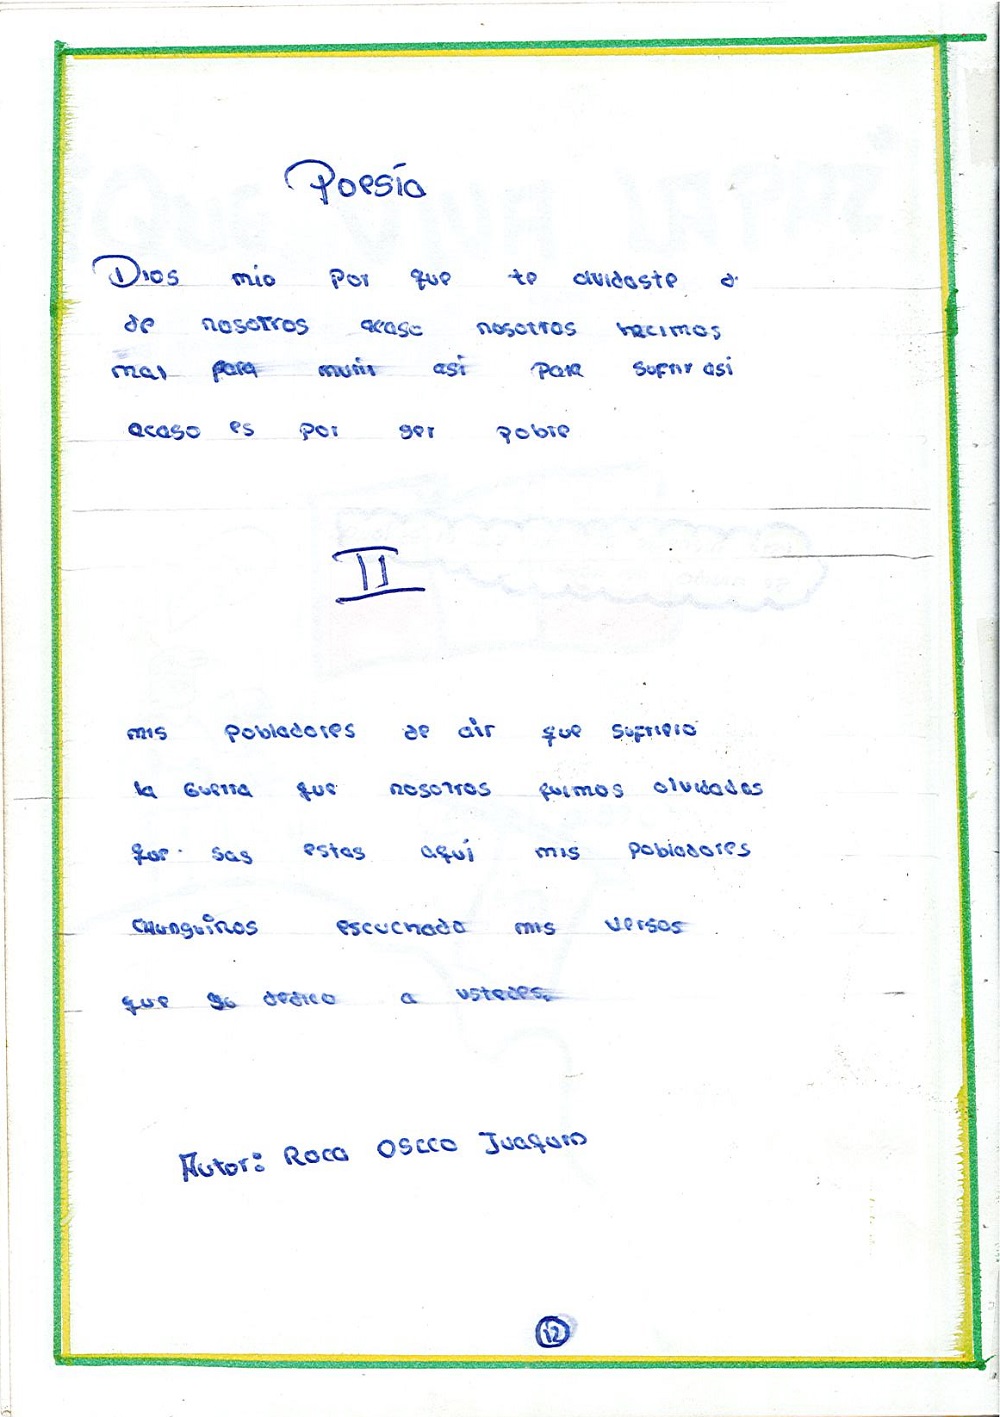 Poesía
Dios mío por que te olvidaste d
de nosotros acaso nosotros hicimos
mal para murir así para sufrir asi
acaso es por ser pobre
II
mis pobladores de air que sufriero
la Guerra que nosotros fuimos olvidados
que sas estas aquí mis pobladores
chunguinos escuchado mis versos
que yo dedico a ustedes.
Autor: Roca OSCCO Juaquin
12